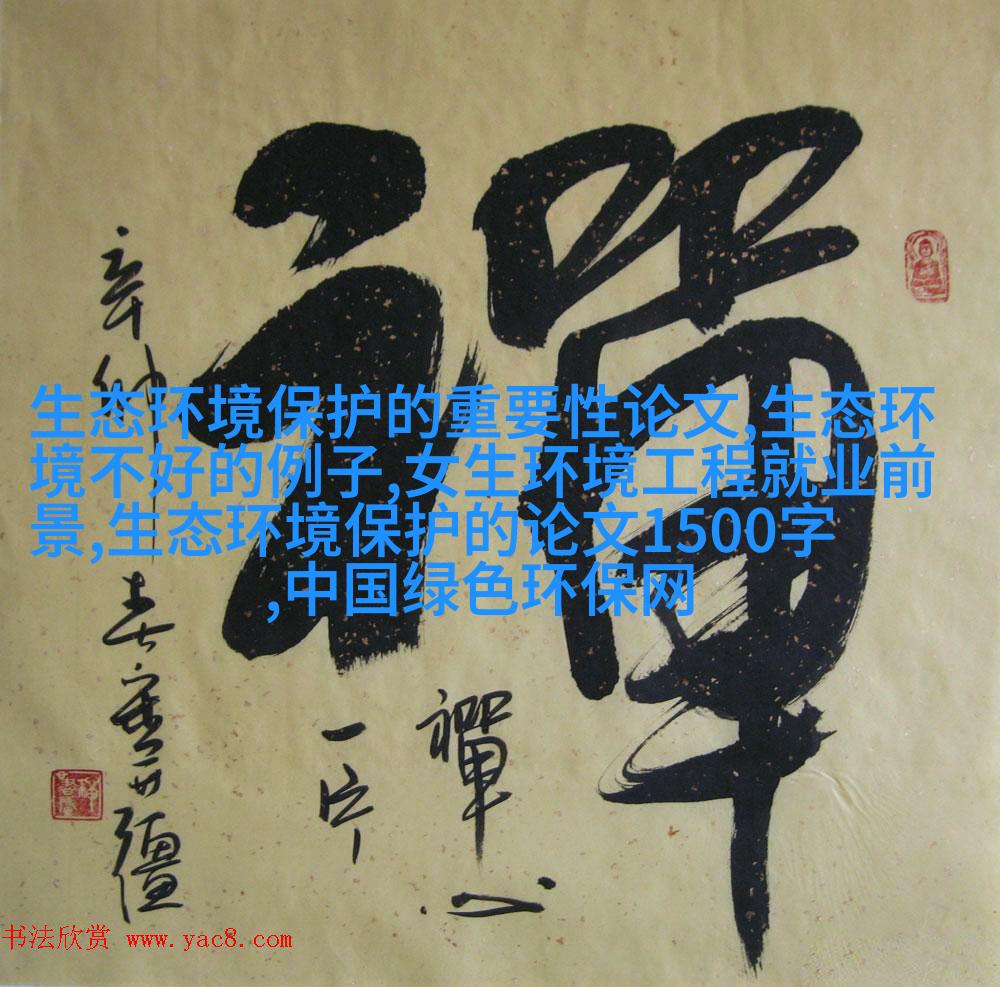 禪
禪心
一片
生态环境保护的重要性论文,生态环
境不好的例子,女生环境工程就业前
景,生态环境保护的论文1500字
,中国绿色环保网
书法欣赏 www.yac8.com